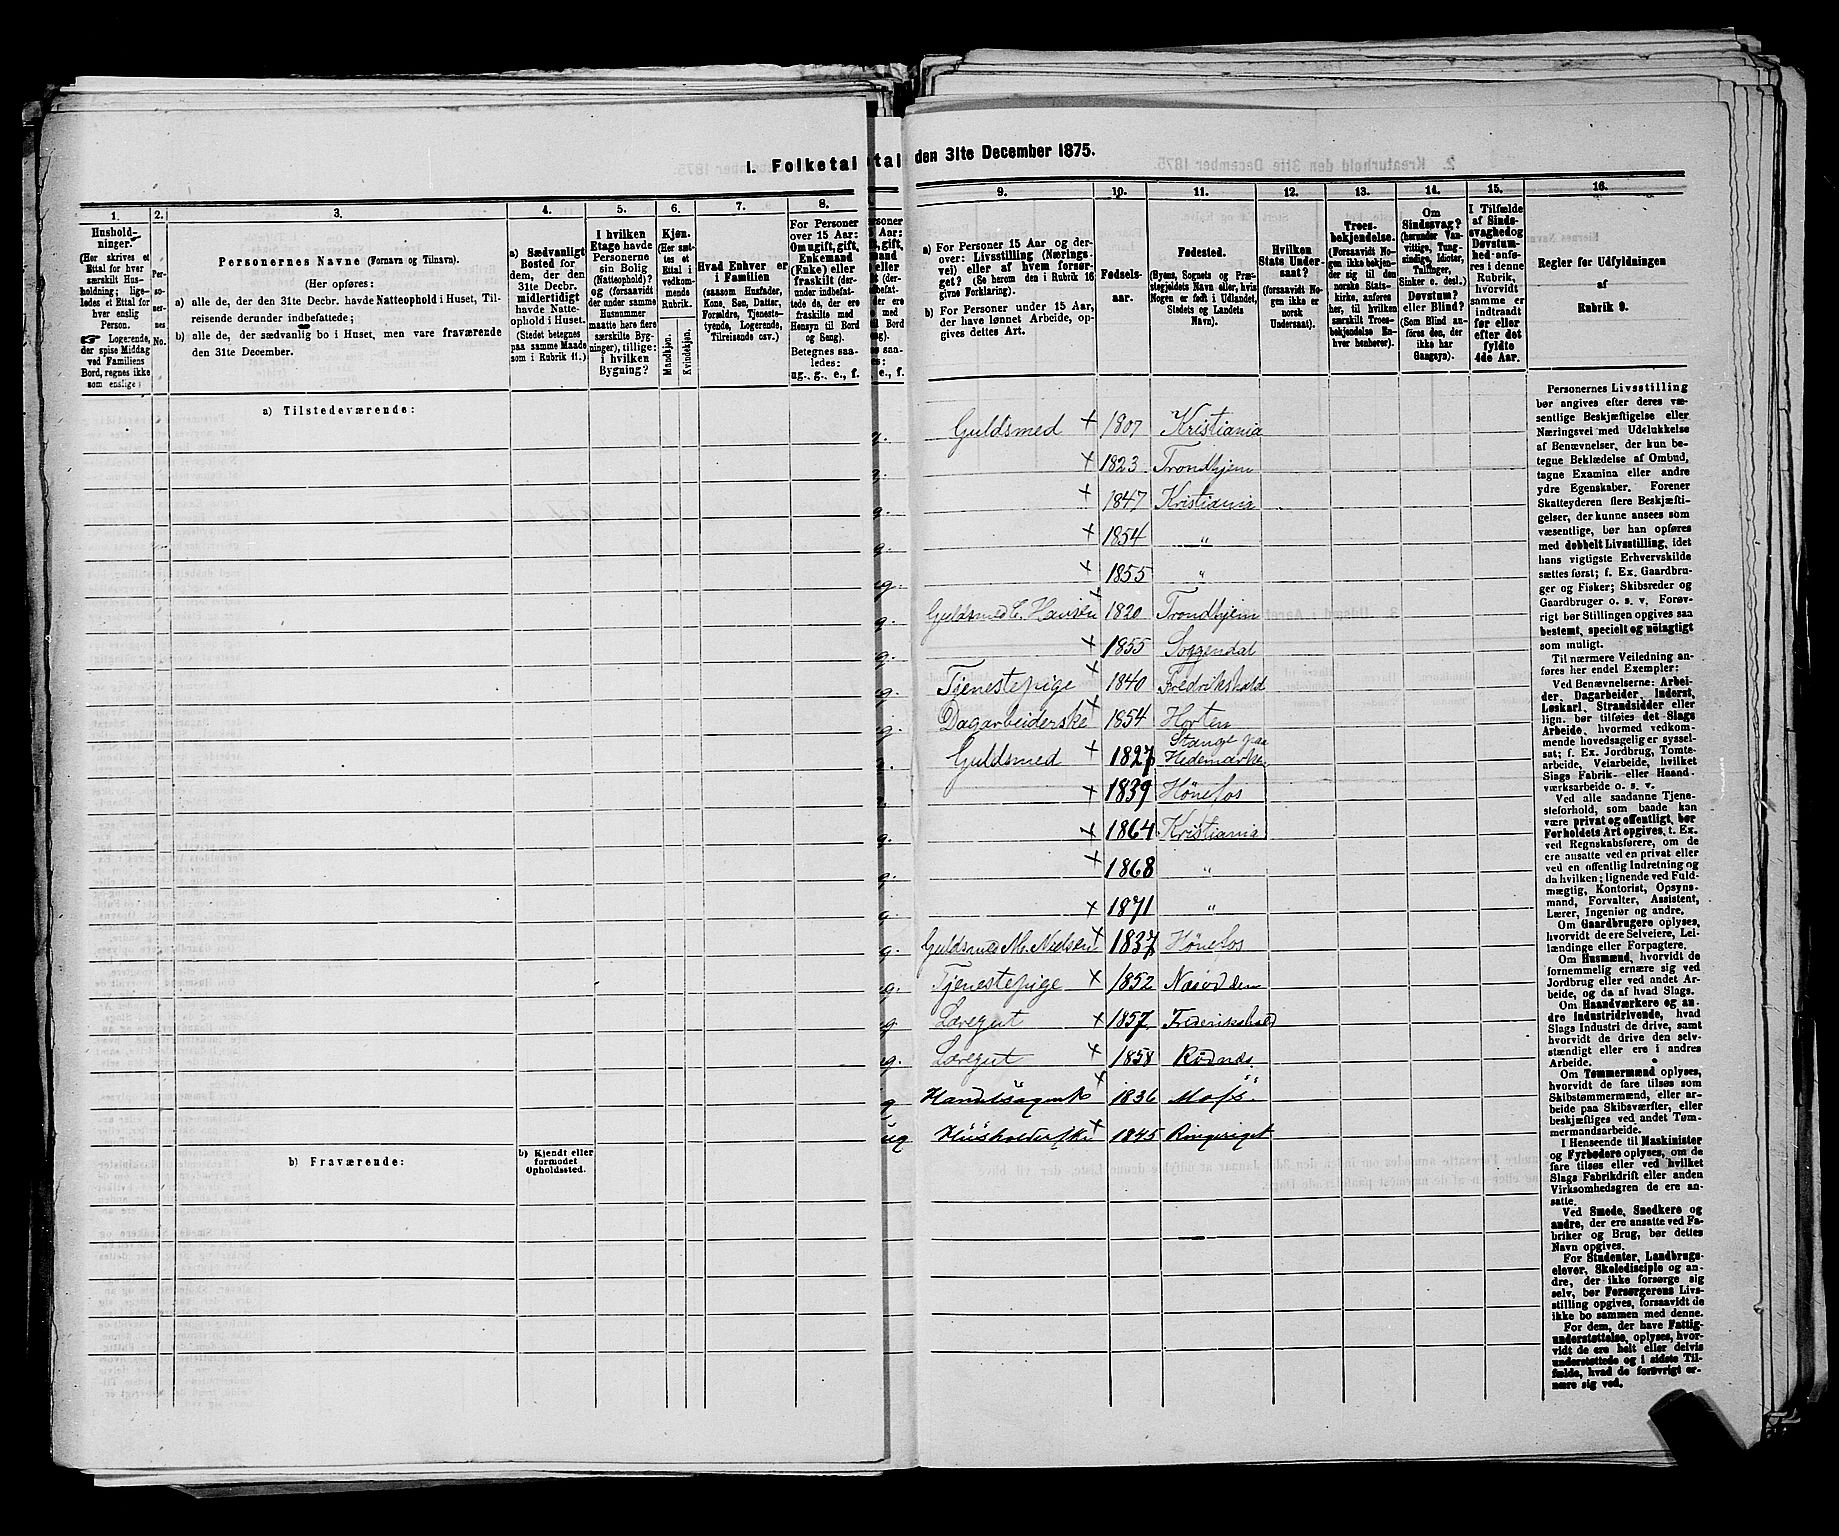 I. Folketal
1.
2.
3.
4.
5.
6.
7.
8.
Hushold-
ninger.
(Her skrives et
Ettal for hver
særskilt Hus-
holdning; lige-
ledes et Ettal for
hver enslig
Person.
☞ Logerende,
der spise Middag
ved Familiens
Bord, regnes ikke
som enslige.)
Per-
so-
ner-
nes
No.
Personernes Navne (Fornavn og Tilnavn).
(Her opføres:
a) alle de, der den 31te Decbr. havde Natteophold i Huset, Til-
reisende derunder indbefattede;
b) alle de, der sædvanlig bo i Huset, men vare fraværende
den 31te December.
a) Sædvanligt
Bosted for
dem, der den
31te Decbr.
midlertidigt
havde Natte-
ophold i Huset.
(Stedet betegnes
paa samme Maade
som i Rubrik 11.)
I hvilken
Etage havde
Personerne
sin Bolig
(Natteophold)?
og (forsaavidt
der under samme
Husnummer
maatte høre flere
særskilte Byg-
ninger), tillige:
i hvilken
Bygning?
Kjøn.
(Her sæt-
tes et
Ettal i
vedkom-
mende
Rubrik.
Mandkjøn.
Kvindekjøn.
Hvad Enhver er
i Familien
(saasom Husfader,
Kone, Søn, Datter,
Forældre, Tjeneste-
tyende, Logerende,
Tilreisende osv.)
For Personer
over 15 Aar:
Om ugift, gift,
Enkemand
(Enke) eller
fraskilt (der-
under indbefat-
tede de, der ere
fraskilte med
Hensyn til Bord
og Seng).
Betegnes saa-
ledes:
ug., g., e., f.
a) Tilstedeværende:
b) Fraværende:
b) Kjendt eller
formodet
Opholdssted.
den 31te December 1875.
9.
10.
11.
12.
13.
14.
15.
16.
a) For Personer 15 Aar og der-
over: Livsstilling (Nærings-
vei) eller af hvem forsør-
get? (Se herom den i Rubrik 16
givne Forklaring).
b) For Personer under 15 Aar,
der have lønnet Arbeide, op-
gives dettes Art.
Fødsels-
aar.
Fødested.
(Byens, Sognets og Præ-
stegjeldets Navn eller, hvis
Nogen er født i Udlandet,
Stedets og Landets
Navn).
Hvilken
Stats Under-
saat?
(forsaavidt No-
gen ikke er
norsk
Undersaat).
Troes-
bekjendelse.
(Forsaavidt No-
gen ikke bekjen-
der sig til den
norske Stats-
kirke, anføres
her, til hvilken
særskilt Troes-
bekjendelse En-
hver henhører).
Om
Sindssvag?
(herunder Van-
vittige, Tung-
sindige, Idioter,
Tullinger,
Sinker o. desl.)
Døvstum?
eller Blind?
(Som Blind an-
føres den, der
ikke har
Gangsyn).
I Tilfælde
af Sinds-
svaghed og
Døvstum-
hed anfø-
res i denne
Rubrik,
hvorvidt
samme er
indtraadt
før eller
efter det
fyldte
4de Aar.
Regler for Udfyldningen
af
Rubrik 9.
Guldsmed × 1807 Kristiania
× 1823 Trondhjem
× 1847 Kristiania
× 1854 „
× 1855 „
Guldsmed C. Hansen × 1820 Trondhjem
× 1855 Soggendal
Tjenestepige × 1840 Fredrikshald
Dagarbeiderske × 1854 Horten
Guldsmed × 1827 Stange paa
Hedemarken
× 1839 Hönefos
× 1864 Kristiania
× 1868 „
× 1871 „
Guldsmed M. Nielsen × 1837 Hönefos
Tjenestepige × 1852 Næsodden
Læregut × 1857 Frederikshald
Læregut × 1858 Rödnæs
Handelsagent × 1836 Moss
ug Huusholderske × 1845 Ringeriget
Personernes Livsstilling
bør angives efter deres væ-
sentlige Beskjæftigelse eller
Næringsvei med Udelukkelse
af Benævnelser, der kun be-
tegne Beklædelse af Ombud,
tagne Examina eller andre
ydre Egenskaber. Forener
Skatteyderen flere Beskjæfti-
gelser, der kunne ansees som
væsentlige, bør han opføres
med dobbelt Livsstilling, idet
hans vigtigste Erhvervskilde
sættes først; f. Ex. Gaardbru-
ger og Fisker; Skibsreder og
Gaardbruger o. s. v. Forøv-
rigt bør Stillingen opgives saa
bestemt, specielt og nöiagtigt
som muligt.
Til nærmere Veiledning an-
føres her endel Exempler:
Ved Benævnelserne: Arbei-
der, Dagarbeider, Inderst,
Løskarl, Strandsidder eller
lign. bør tilføies det Slags
Arbeide, hvormed vedkom-
mende hovedsagelig er syssel-
sat; f. Ex. Jordbrug, Tomte-
arbeide, Veiarbeide, hvilket
Slags Fabrik- eller Haand-
værksarbeide o. s. v.
Ved alle saadanne Tjene-
steforhold, som baade kan
være privat og offentligt, bør
Forholdets Art opgives, t. Ex.
ved Regnskabsførere, om de
ere ansatte ved en privat eller
ved en offentlig Indretning og
da hvilken; lignende ved Fuld-
mægtig, Kontorist, Opsyns-
mand, Forvalter, Assistent,
Lærer, Ingeniør og andre.
Om Gaardbrugere oplyses,
hvorvidt de ere Selveiere, Lei-
lændinge eller Forpagtere.
Om Husmænd, hvorvidt de
fornemmelig ernære sig ved
Jordbrug eller ved andet Ar-
beide, og da af hvad Slags.
Om Haandværkere og an-
dre Industridrivende, hvad
Slags Industri de drive, samt
hvorvidt de drive den selv-
stændigt eller ere i andres
Arbeide.
Om Tømmermænd oplyses,
hvorvidt de fare tilsøs som
Skibstømmermænd, eller ar-
beide paa Skibsværfter, eller
beskjæftiges ved andet Tøm-
mermandsarbeide.
I Henseende til Maskinister
og Fyrbødere oplyses, om de
fare tilsøs eller ved hvilket
Slags Fabrikdrift eller anden
Virksomhedsgren de ere an-
satte.
Ved Smede, Snedkere og
andre, der ere ansatte ved Fa-
briker og Brug, bør dettes
Navn opgives.
For Studenter, Landbrugs-
elever, Skoledisciple og an-
dre, der ikke forsørge sig
selv, bør Forsørgerens Livs-
stilling opgives, forsaavidt de
ikke bo sammen med denne.
For dem, der have Fattig-
understøttelse, oplyses, hvor-
vidt de ere helt eller delvis
understøttede og i sidste Til-
fælde, hvad de forøvrigt er-
nære sig ved.